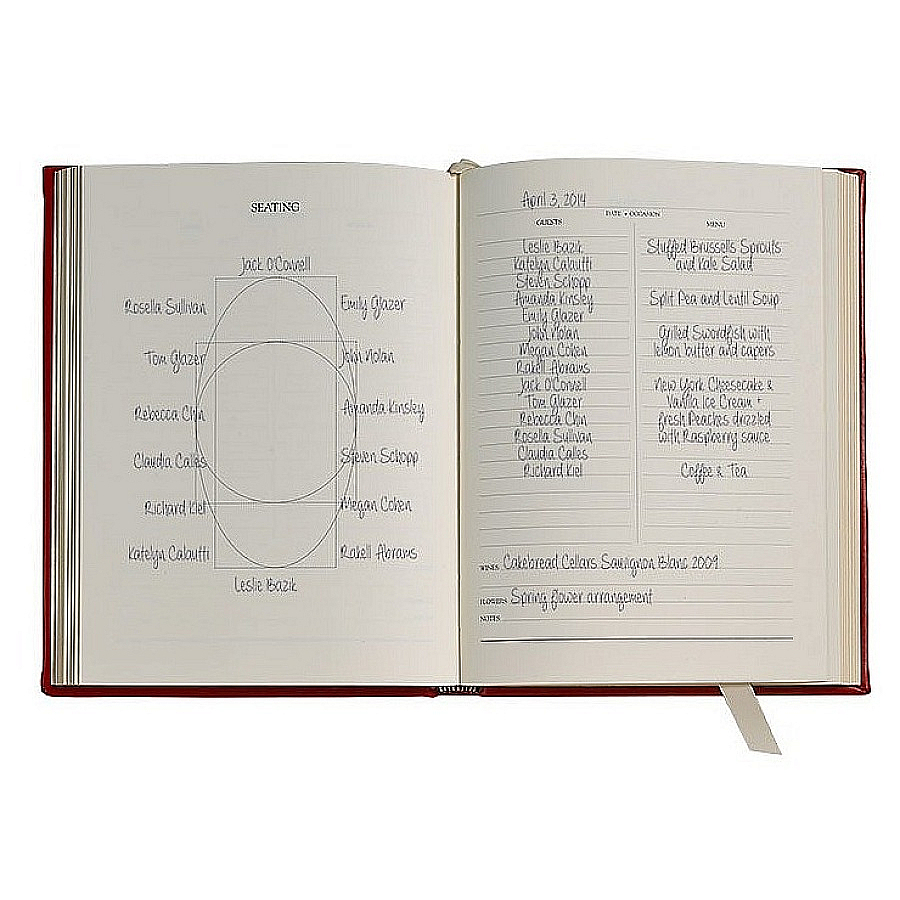 SEATING
Jack O'Connell
Rosella Sullivan
Emily Glazer
Tom Glazer
John Nolan
Rebecca Chin
Amanda Kinsley
Claudia Calles
Steven Schopp
Richard Kiel
Megan Cohen
Katelyn Calautti
Rakell Abrams
Leslie Bazik
April 3, 2014
DATE • OCCASION
GUESTS
Leslie Bazik
Katelyn Calautti
Steven Schopp
Amanda Kinsley
Emily Glazer
John Nolan
Megan Cohen
Rakell Abrams
Jack O'Connell
Tom Glazer
Rebecca Chin
Rosella Sullivan
Claudia Calles
Richard Kiel
MENU
Stuffed Brussells Sprouts
and Kale Salad
Split Pea and Lentil Soup
Grilled Swordfish with
lemon butter and capers
New York Cheesecake &
Vanilla Ice Cream +
fresh Peaches drizzled
with Raspberry sauce
Coffee & Tea
WINES Cakebread Cellars Sauvignon Blanc 2009
FLOWERS Spring flower arrangement
NOTES